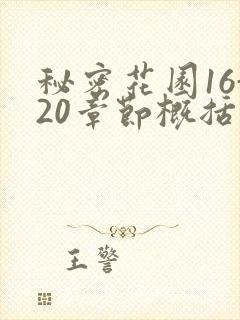 秘密花园16-
20章节概括
王警